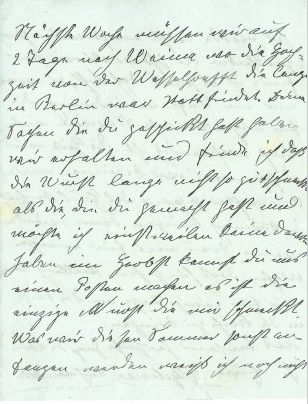 Nächste Woche müssen wir auf
2 Tage nach Weimar wo die Hoch-
zeit von der die lange
in Berlin war stattfindet. Deine
Sachen die du geschickt hast haben
wir erhalten und finde ich daß
die Wurst lange nicht so gut schmeckt
als die die du gemacht hast und
möchte ich einstweilen keine davon
haben im Herbst kannst du uns
einen Posten machen es ist die
einzige Wurst die mir schmeckt.
Was wir diesen Sommer sonst an-
fangen werden weiß ich noch nicht